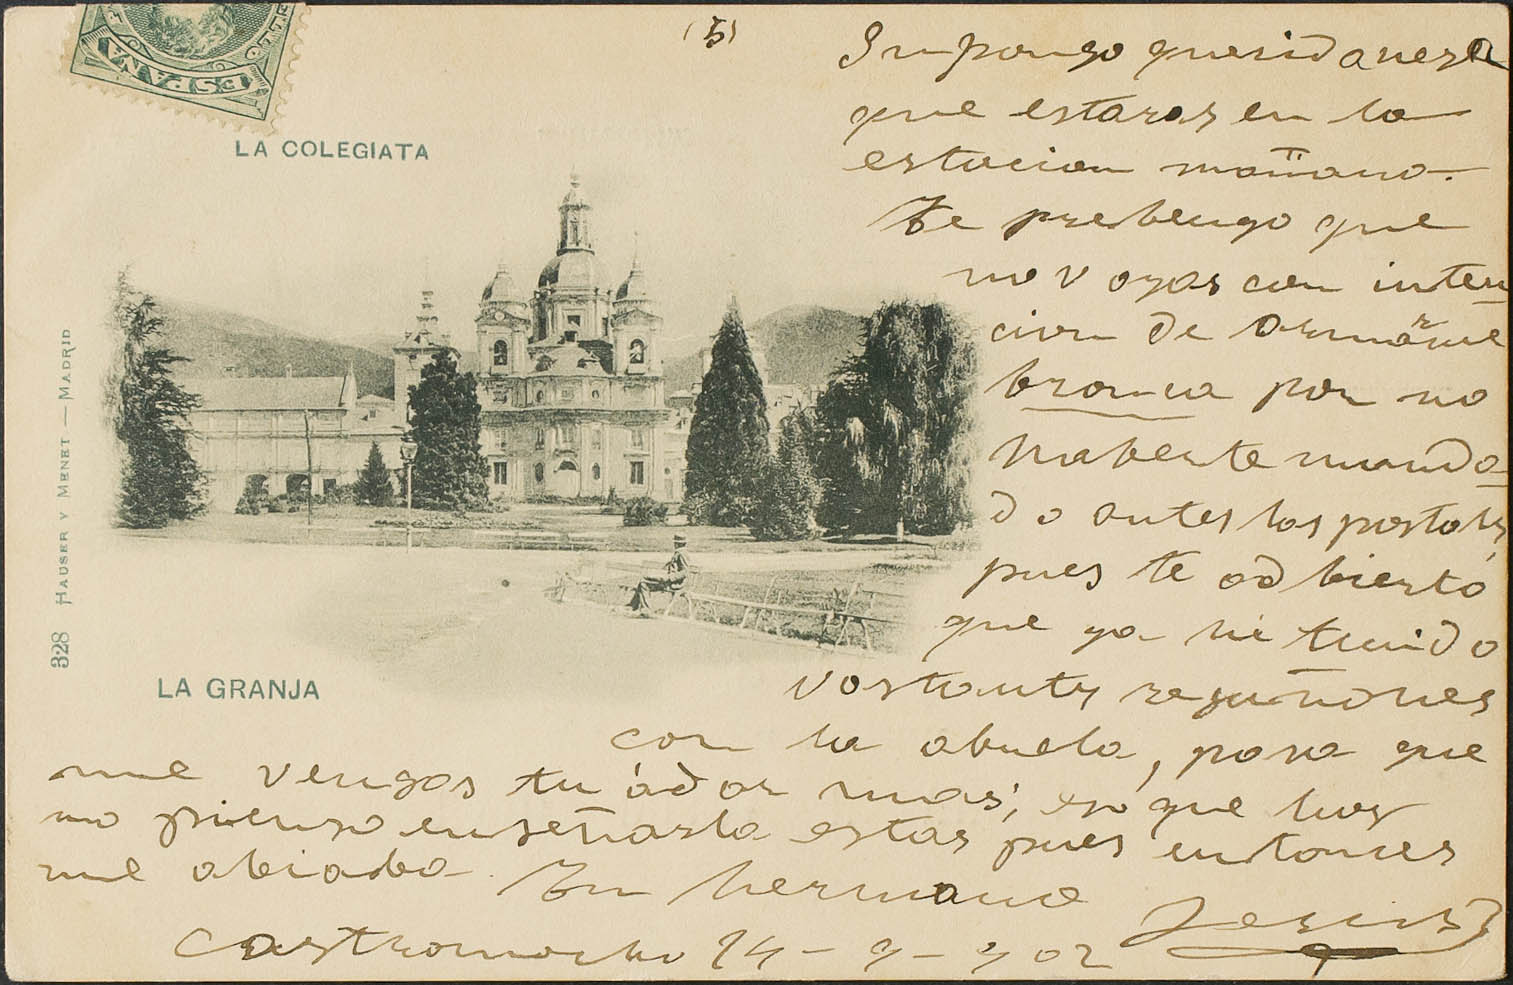 (5)
ESPAÑA
LA COLEGIATA
328 HAUSER Y MENET — MADRID
LA GRANJA
Supongo querida
que estaras en la
estacion mañana.
Te prebengo que
no vayas con inten
cion de armarme
bronca por no
haberte manda
do antes las postales,
pues te adbierto
que ya he tenido
vostantes regañones
con la abuela, para que
me vengas tu á dar mas; es que hoy
no pienso enseñarla estas pues entonces
me
Tu hermano
Jesus
Castromocho 14-9-902